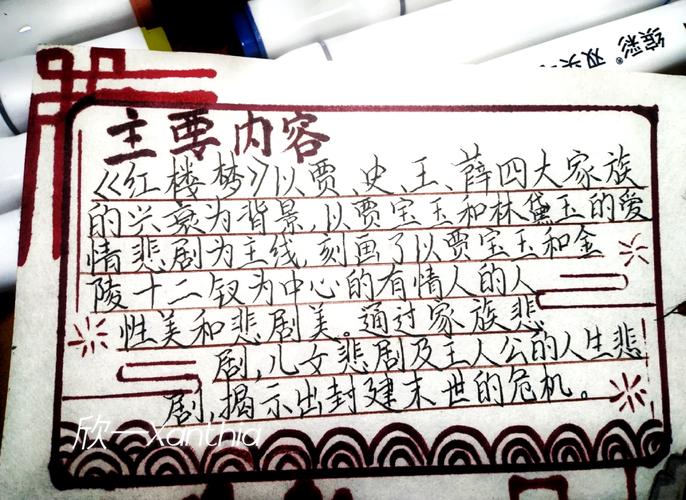 缤彩® 双头
主要内容
《红楼梦》以贾、史、王、薛四大家族
的兴衰为背景,以贾宝玉和林黛玉的爱
情悲剧为主线,刻画了以贾宝玉和金
陵十二钗为中心的有情人的人
性美和悲剧美。通过家族悲
剧,儿女悲剧及主人公的人生悲
剧,揭示出封建末世的危机。
欣一Xanthia